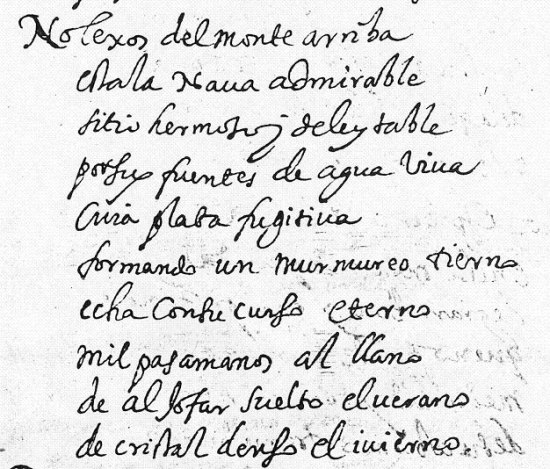 No lexos del monte arriba
esta la Naua admirable
sitio hermoso y deleytable
por sus fuentes de agua viua
Cuia plata fugitiua
formando un murmureo tierno
echa con su curso eterno
mil pasamanos al llano
de al Jofar suelto el uerano
de cristal denso el iuierno